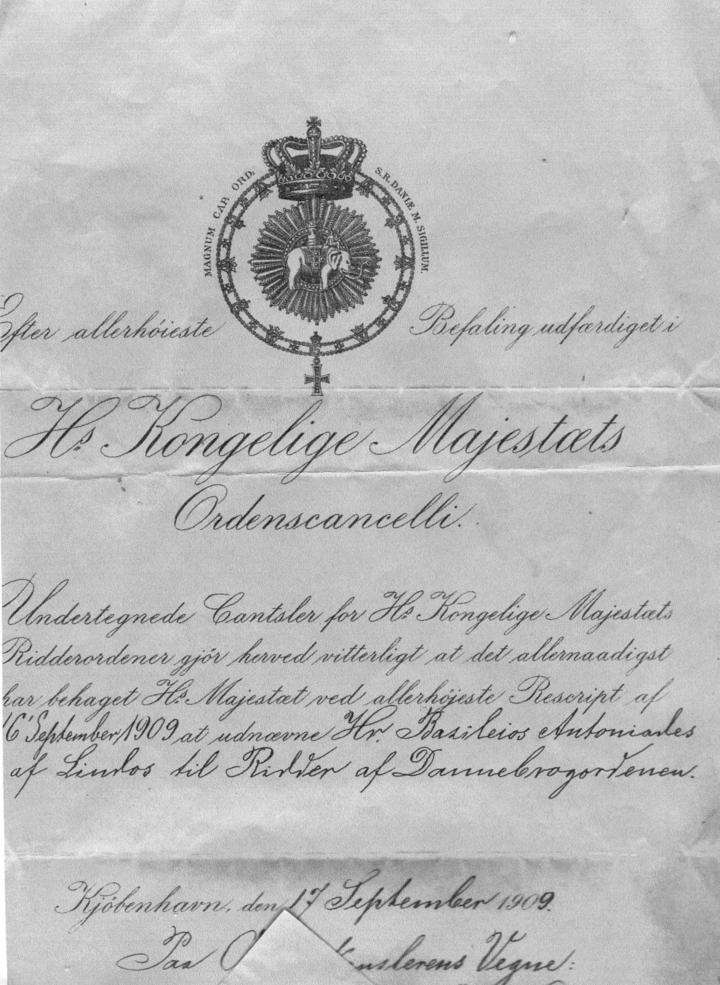 MAGNUM CAP. ORD. S.R. DANIÆ M. SIGILLUM.
Efter allerhöieste Befaling udfærdiget i
Hs Kongelige Majestæts
Ordenscancelli.
Undertegnede Cantsler for Hs Kongelige Majestæts
Ridderordener gjör herved vitterligt at det allernaadigst
har behaget Hs Majestæt ved allerhöjeste Rescript af
16 September 1909 at udnævne Hr. Bazileios Antoniades
af Lindos til Ridder af Dannebrogordenen.
Kjöbenhavn, den 17 September 1909.
Paa Vegne: